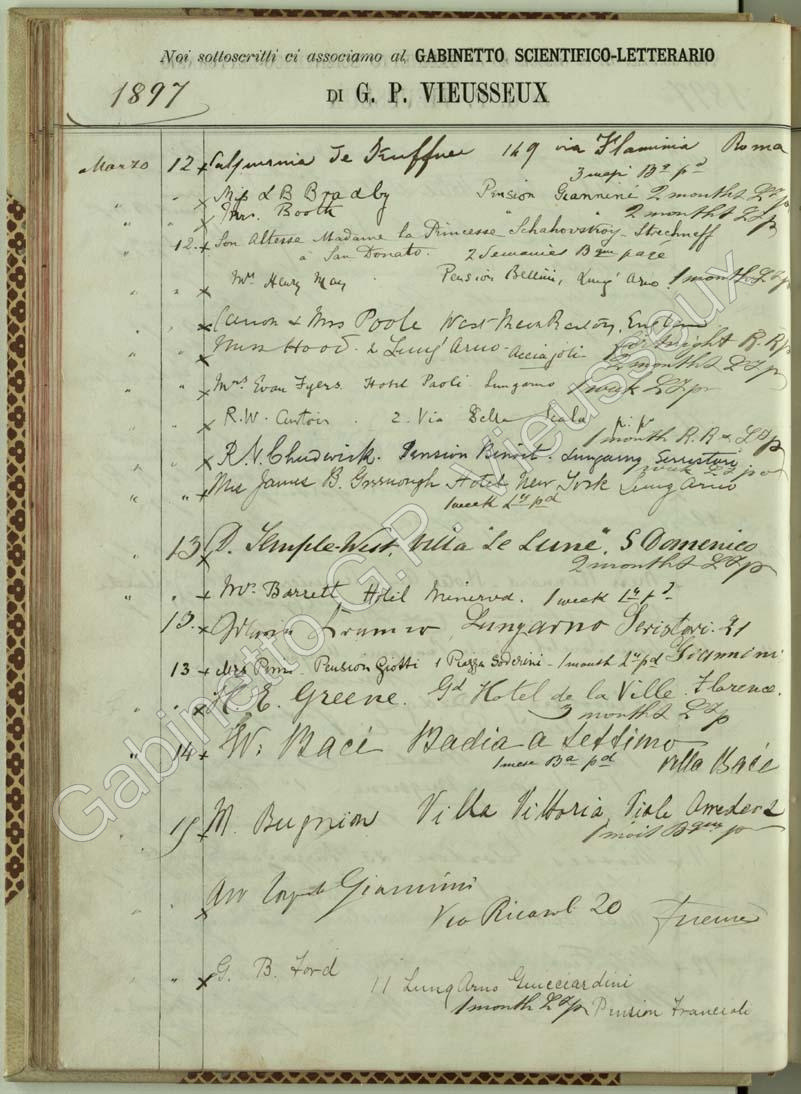 Noi sottoscritti ci associamo al GABINETTO SCIENTIFICO-LETTERARIO
1897
DI G. P. VIEUSSEUX
Marzo 12 x de 149 via Flaminia Roma
3 mesi pd
" " x Miss L B Bradby Pension Giannini 2 months
" " x Mrs. Booth " " 2 months
12. x Son Altesse Madame la Princesse Schahovskoy - Strechneff
à San Donato. 2 Semaines payé
" " x Mrs Henry May Pension Bellini, Lung' Arno 1 month
x Canon & Mrs Poole West Meon Rectory, England
fortnight
" " x Miss Hood. 2 Lung' Arno Acciajoli
2 months
" " x Mrs Evan Fyers. Hotel Paoli Lungarno 1 week
x R. W. 2. Via Della Scala
1 month
" " x R. N. Chadwick. Pension Benoit. Lungarno Serristori
week
" " x James B. Greenough Hotel New York Lung Arno
1 week pd
" 13 x D. Temple-West, Villa "Le Lune", S Domenico
2 months
" " x Mr. Barrett Hotel Minerva. 1 week pd
13. x Lungarno Seristori. 21
13 x Mrs Pension Giotti 1 Piazza Soderini - 1 month pd Giannini
" " x H. E. Greene. Gd Hotel de la Ville. Florence.
3 months
" 14 x W. Bacé Badia a Settimo
1 mese pd Villa Bacé
" 15 x M. Bugnion Villa Vittoria, Viale Amedeo 2
1 mois
" " x Avv Giannini
Via Ricasoli 20 Firenze
" " x G. B. Ford 11 Lung Arno Guicciardini
1 month Pension
Gabinetto G.P. Vieusseux